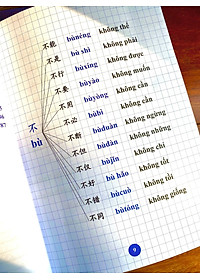 不能 bùnéng không thể
不是 bú shì không phải
不行 bùxíng không được
不要 bùyào không muốn
不用 bùyòng không cần
不必 bùbì không cần
不
bù
不断 bùduàn không ngừng
不但 bùdàn không những
不仅 bùjǐn không chỉ
不好 bù hǎo không tốt
不错 bùcuò không tồi
不同 bùtóng không giống
9